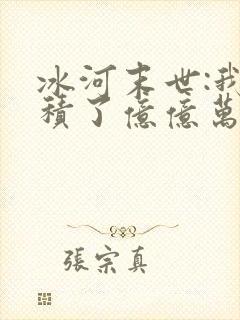 冰河末世:我
積了億億萬
張宗真